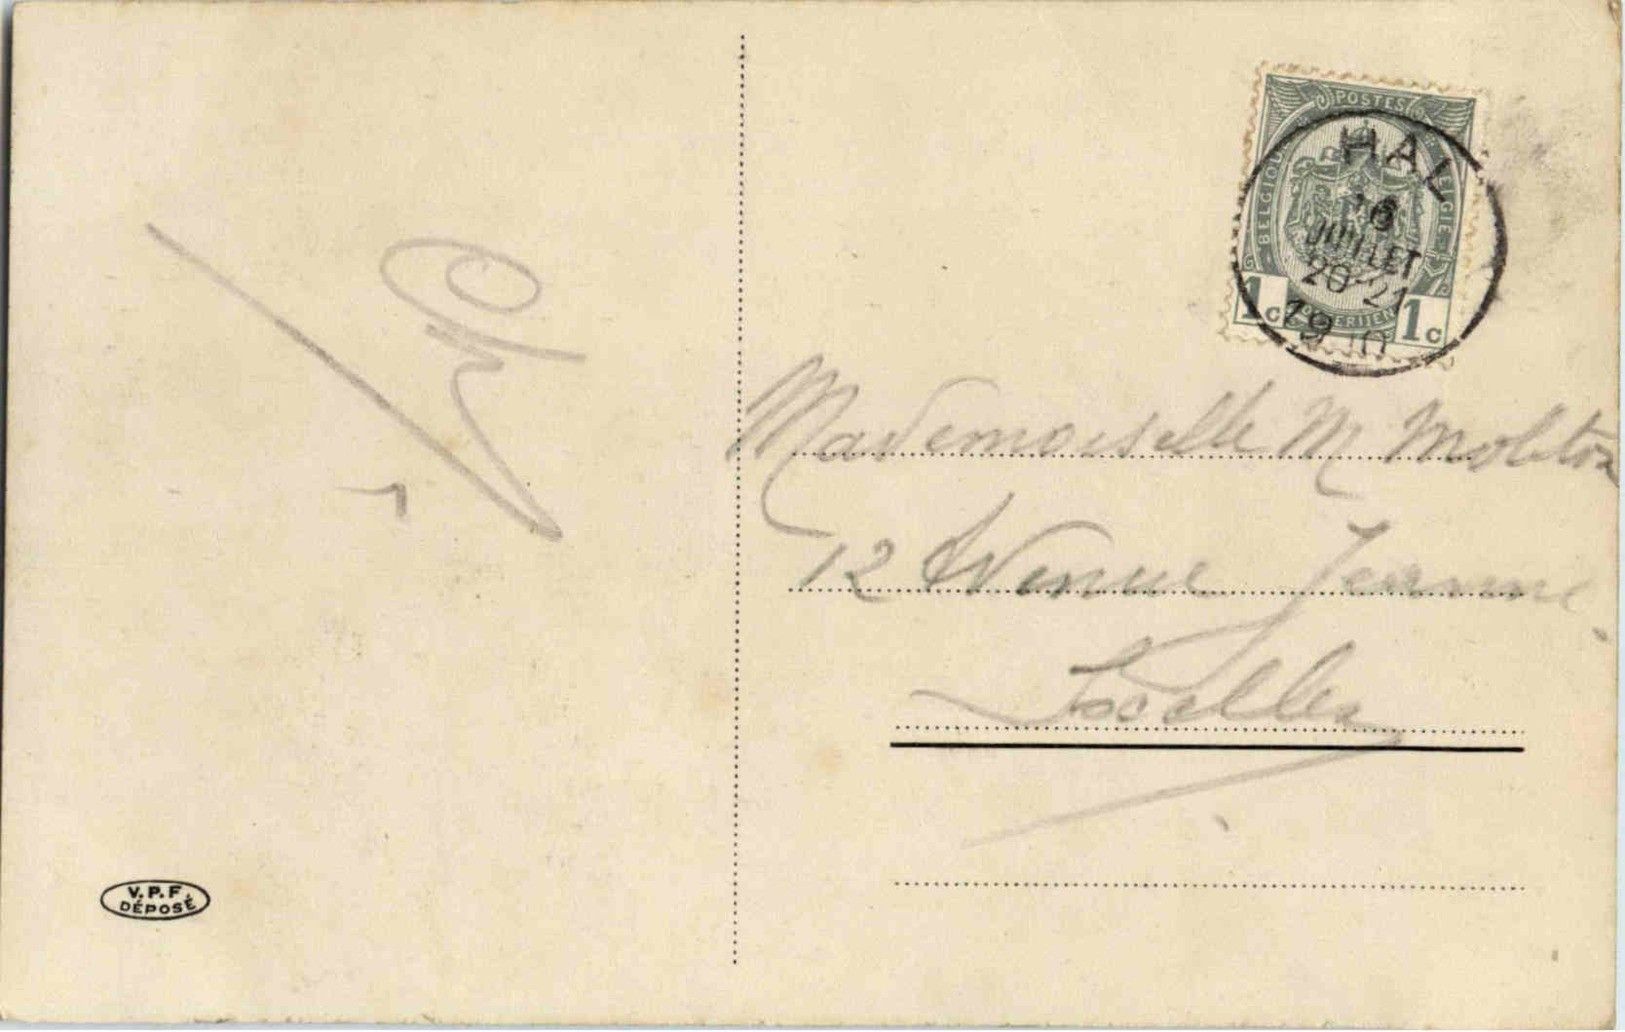 POSTES
BELGIQUE
BELGIË
POSTERIJEN
1c 1c
HAL
16
JUILLET
20-21
1910
Mademoiselle M
12 Avenue Jeanne
Ixelles
V.P.F.
DÉPOSÉ